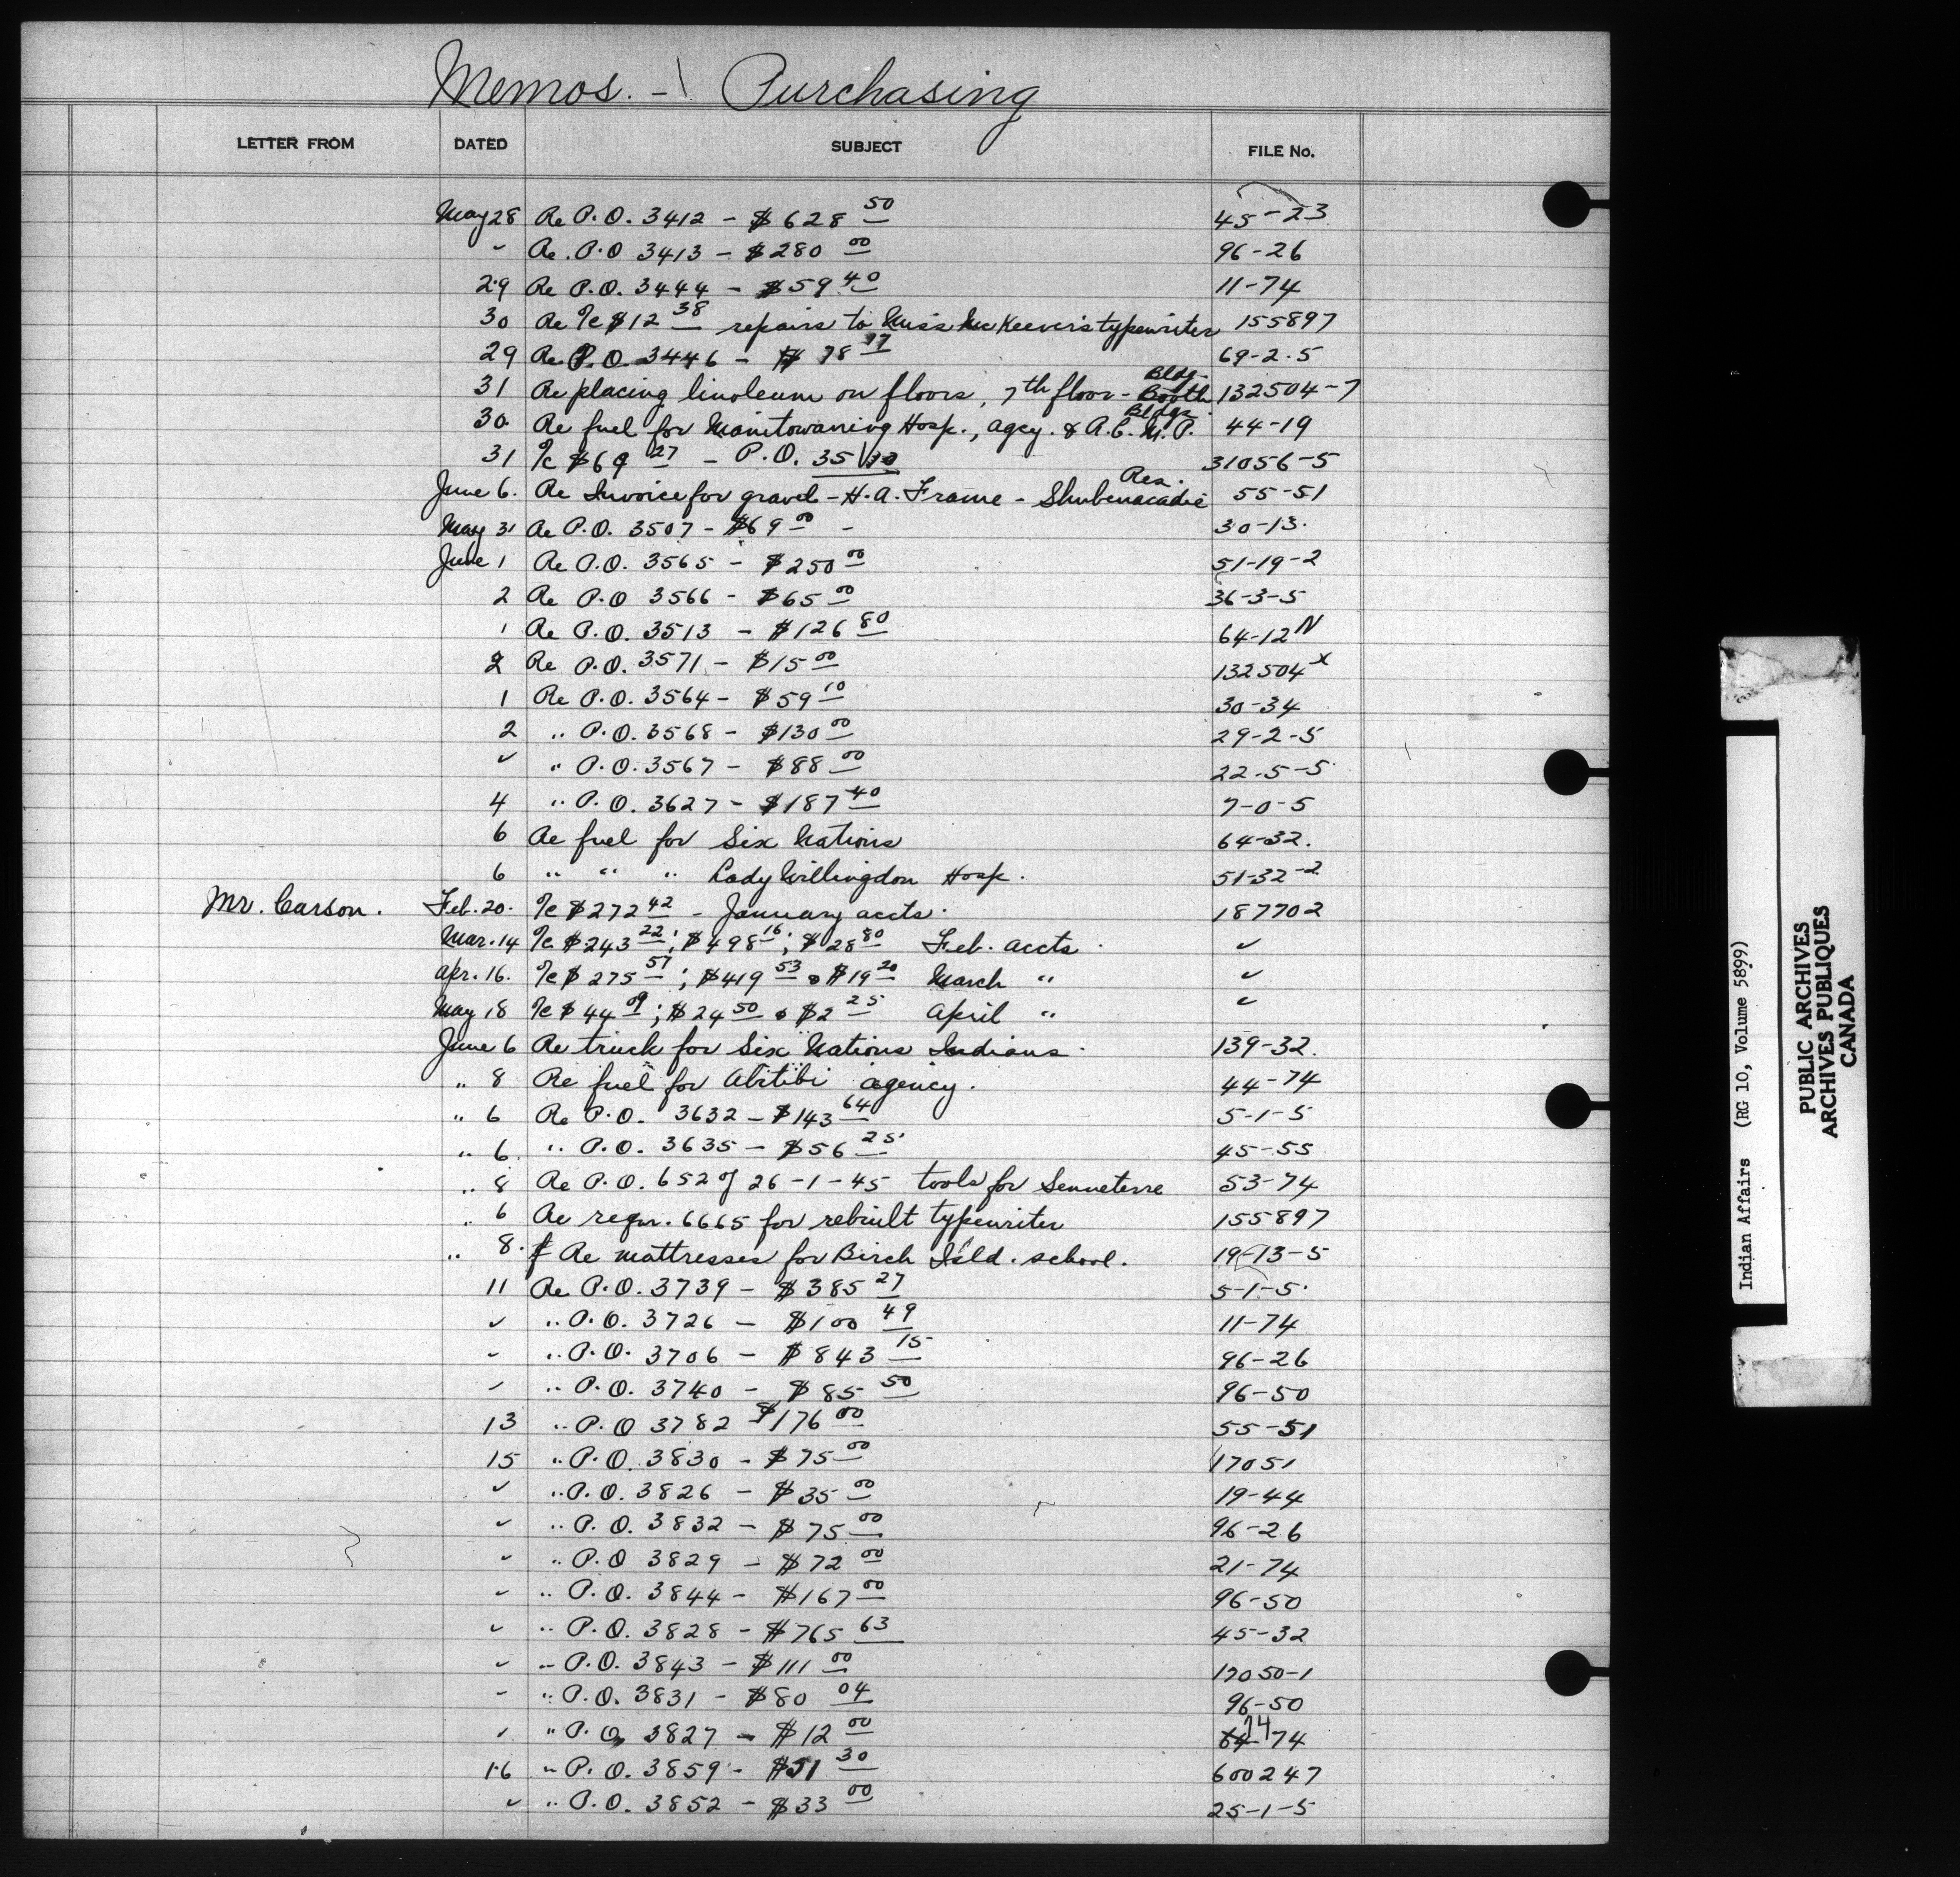 Memos. - Purchasing
LETTER FROM DATED SUBJECT FILE No.
May 28 Re P.O. 3412 - $628 50 45-23
" Re. P.O 3413 - $280 00 96-26
29 Re P.O. 3444 - $59 40 11-74
30 Re %c $12 38 repairs to Miss McKeever's typewriter 155897
29 Re P.O. 3446 - $ 78 17 69-2-5
31 Re placing linoleum on floors, 7th floor - Booth Bldg. 132504-7
30 Re fuel for Manitowaning Hosp., agcy. & R.C.M.P. Bldgs. 44-19
31 %c $69 27 - P.O. 35 31056-5
June 6. Re Invoice for gravel - H.A. Frame - Shubenacadie Res. 55-51
May 31 Re P.O. 3507 - $69 00 - 30-13.
June 1 Re P.O. 3565 - $250 00 51-19-2
2 Re P.O 3566 - $65 00 36-3-5
1 Re P.O. 3513 - $126 80 64-12 N
2 Re P.O. 3571 - $15 00 132504 x
1 Re P.O. 3564 - $59 10 30-34
2 " P.O. 3568 - $130 00 29-2-5
" " P.O. 3567 - $88 00 22-5-5
4 " P.O. 3627 - $187 40 7-0-5
6 Re fuel for Six Nations 64-32.
6 " " " Lady Willingdon Hosp. 51-32-2
Mr. Carson. Feb. 20. %c $272 42 - January accts. 187702
Mar. 14 %c $243 22; $498 16; $28 80 Feb. accts. "
Apr. 16. %c $275 57; $419 53 & $19 20 March " "
May 18 %c $44 09; $24 50 & $2 25 April " "
June 6 Re truck for Six Nations Indians. 139-32.
" 8 Re fuel for Abitibi agency. 44-74
" 6 Re P.O. 3632 - $143 64 5-1-5
" 6. " P.O. 3635 - $56 25. 45-55
" 8 Re P.O. 652 of 26-1-45 tools for Senneterre 53-74
" 6 Re reqn. 6665 for rebuilt typewriter 155897
" 8. Re mattresses for Birch Isld. school. 19-13-5
11 Re P.O. 3739 - $385 27 5-1-5.
" " P.O. 3726 - $100 49 11-74
" " P.O. 3706 - $843 15 96-26
" " P.O. 3740 - $85 50 96-50
13 " P.O 3782 $176 00 55-51
15 " P.O. 3830 - $75 00 17051
" " P.O. 3826 - $35 00 19-44
" " P.O. 3832 - $75 00 96-26
" " P.O 3829 - $72 00 21-74
" " P.O. 3844 - $167 00 96-50
" " P.O. 3828 - $765 63 45-32
" " P.O. 3843 - $111 00 17050-1
" " P.O. 3831 - $80 04 96-50
" " P.O. 3827 - $12 00 14 74
16 " P.O. 3859 - $51 30 600247
" " P.O. 3852 - $33 00 25-1-5
Indian Affairs (RG 10, Volume 5899)
PUBLIC ARCHIVES
ARCHIVES PUBLIQUES
CANADA